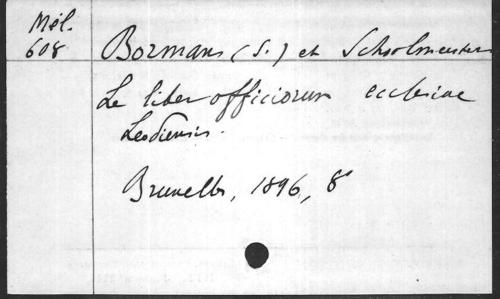 Mél.
608
Bormans (S.) et Schoolmeesters
Le liber officiorum ecclesiae
Leodiensis.
Bruxelles, 1896, 8°